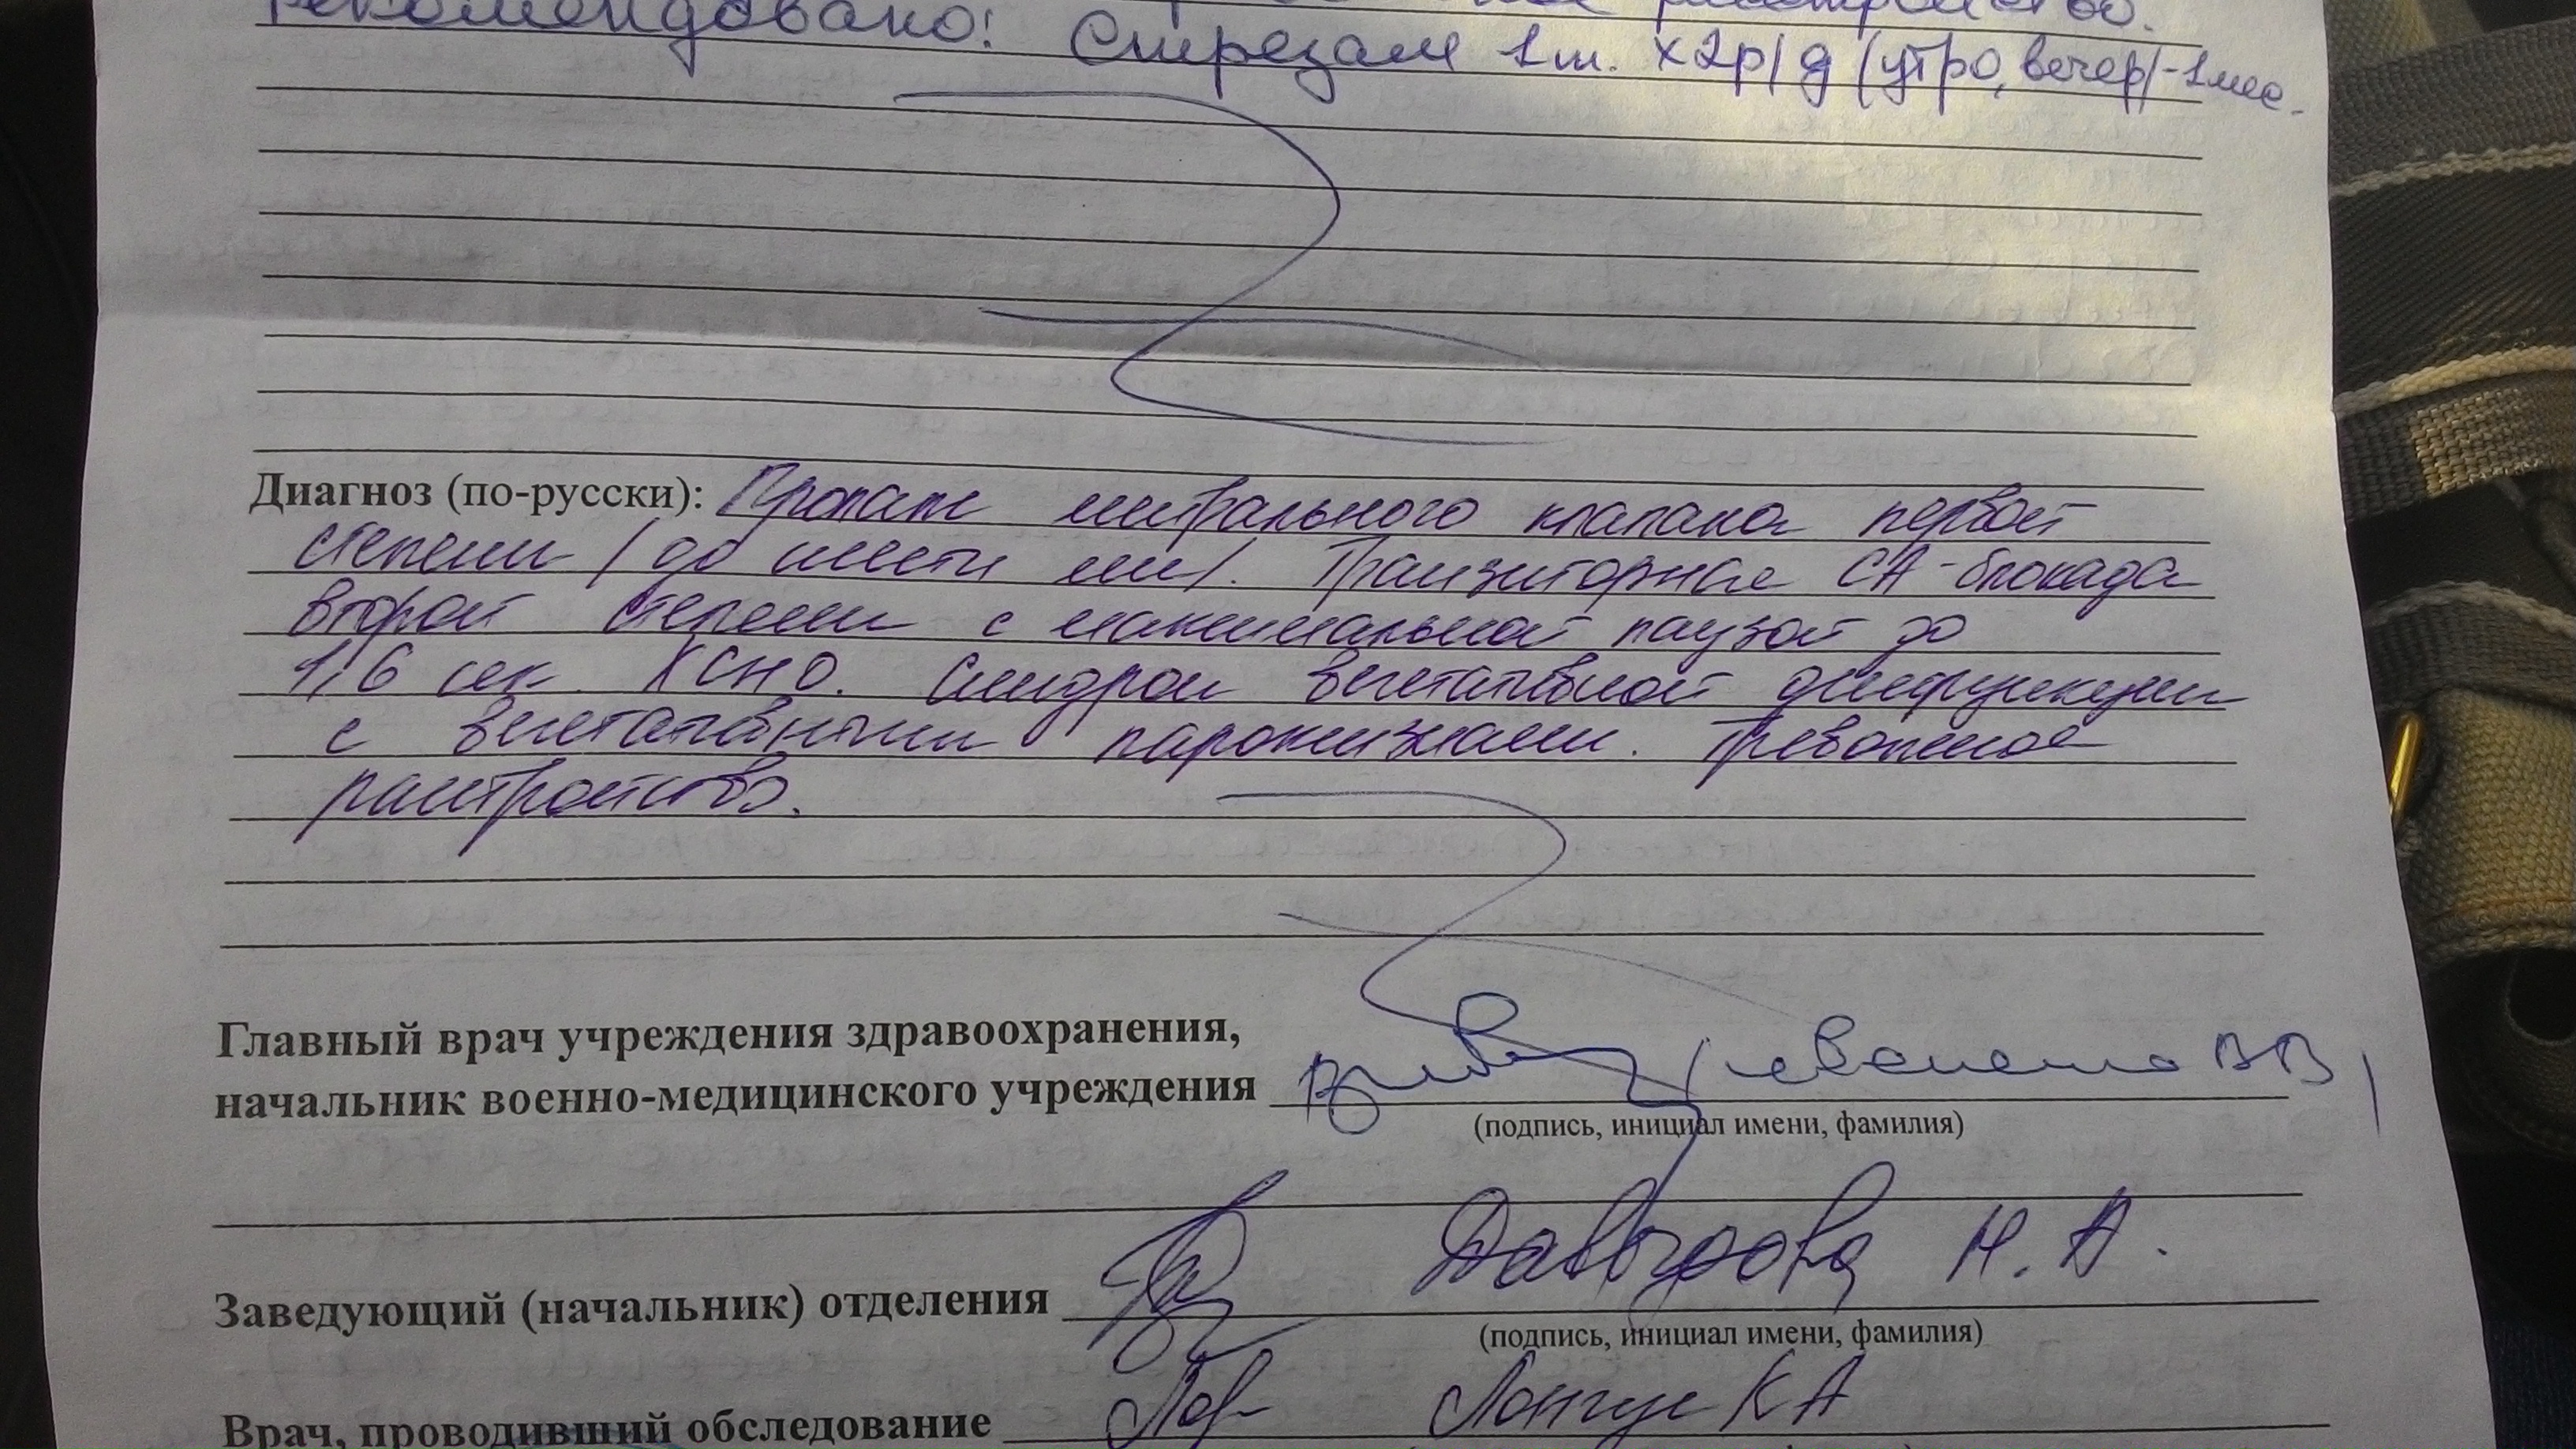 расстройство.
Рекомендовано: Стрезам 1т. х2р/д (утро, вечер) - 1мес.
Диагноз (по-русски): Пролапс митрального клапана первой
степени (до шести мм). Транзиторная СА-блокада
второй степени с максимальной паузой до
1,6 сек. ХСН0. Синдром вегетативной дисфункции
с вегетативными пароксизмами. Тревожное
расстройство.
Главный врач учреждения здравоохранения,
начальник военно-медицинского учреждения В.В.
(подпись, инициал имени, фамилия)
Давыдова Н. А.
Заведующий (начальник) отделения
(подпись, инициал имени, фамилия)
Врач, проводивший обследование К А